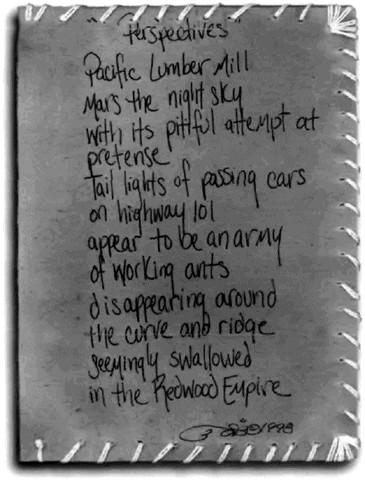 "Perspectives"
Pacific Lumber Mill
Mars the night sky
with its pitiful attempt at
pretense
Tail lights of passing cars
on highway 101
appear to be an army
of working ants
disappearing around
the curve and ridge
seemingly swallowed
in the Redwood Empire